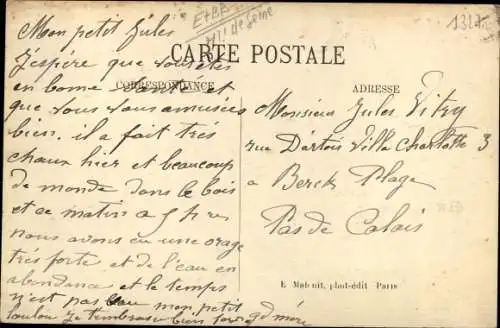 1317
E+BE
Mon petit Jules
CARTE POSTALE
J'espère que vous êtes
en bonne santé et
CORRESPONDANCE
ADRESSE
que vous vous amusiez
bien. il a fait très
chaux hier et beaucoup
de monde dans le bois
et ce matin a 5 h
nous avons eu une orage
très forte et de l'eau en
abondance et le temps
n'est pas beau mon petit
loulou je t'embrasse bien fort gd mère
Monsieur Jules Vitry
rue D'artois Villa Charlotte 3
a Berck Plage
Pas de Calais
E. Malcuit, phot-édit Paris